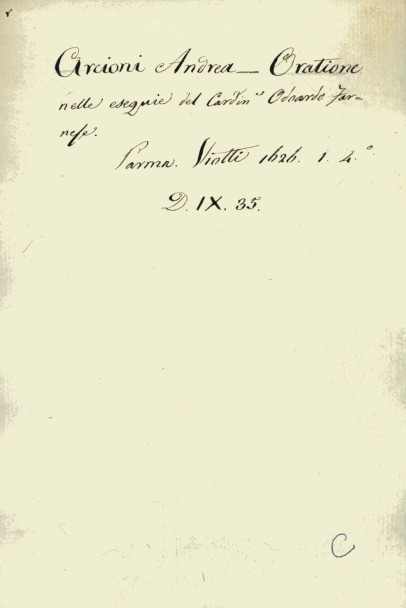 Arcioni Andrea — Oratione
nelle esequie del Cardin.e Odoardo Far-
nese.
Parma. Viotti 1626. 1. 4.o
D. IX. 35.
C